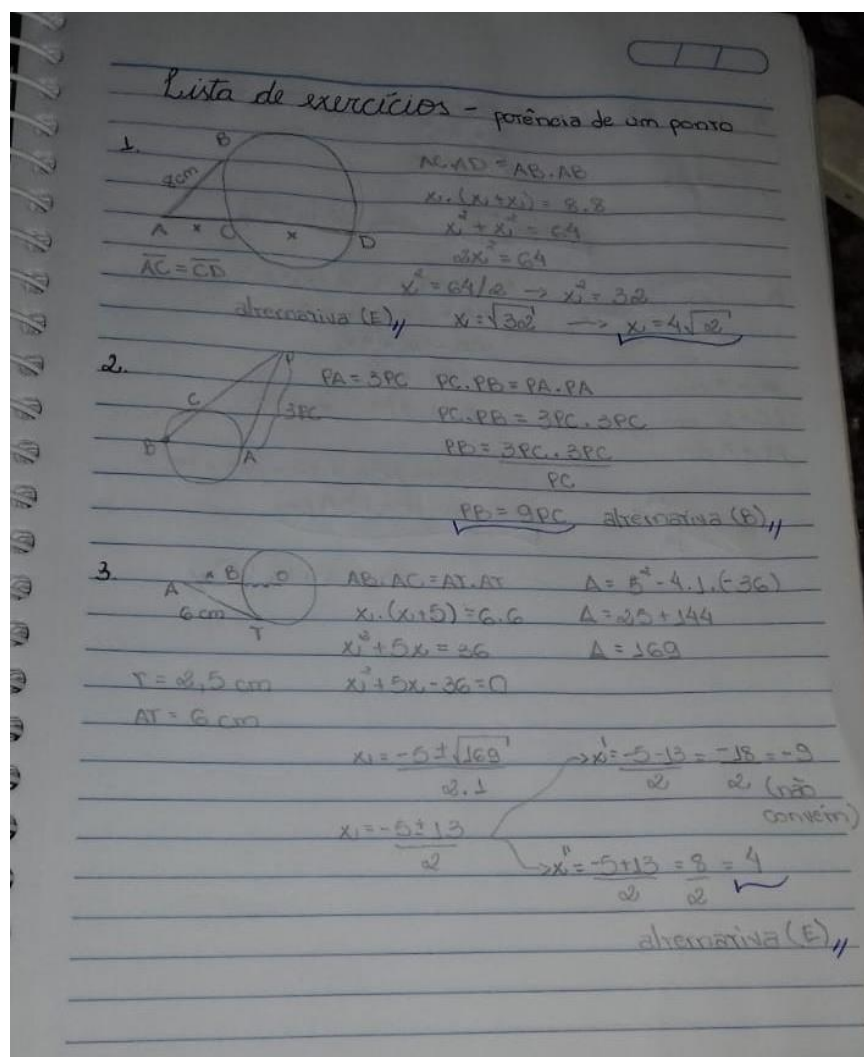 Lista de exercícios - potência de um ponto
1.
B
8cm
A x C x D
AC = CD
AC.AD = AB.AB
x.(x+x) = 8.8
x² + x² = 64
2x² = 64
x² = 64/2 → x² = 32
alternativa (E),, x = √32 → x = 4√2
2.
P
C
3PC
B
A
PA = 3PC PC.PB = PA.PA
PC.PB = 3PC.3PC
PB = 3PC.3PC
PC
PB = 9PC alternativa (B),,
3.
A x B O
6 cm
T
r = 2,5 cm
AT = 6 cm
AB.AC = AT.AT
x.(x+5) = 6.6
x² + 5x = 36
x² + 5x - 36 = 0
Δ = 5² - 4.1.(-36)
Δ = 25 + 144
Δ = 169
x = -5 ± √169
2.1
x = -5 ± 13
2
→ x' = -5 - 13 = -18 = -9
2 2 (não
convém)
→ x" = -5 + 13 = 8 = 4
2 2
alternativa (E),,